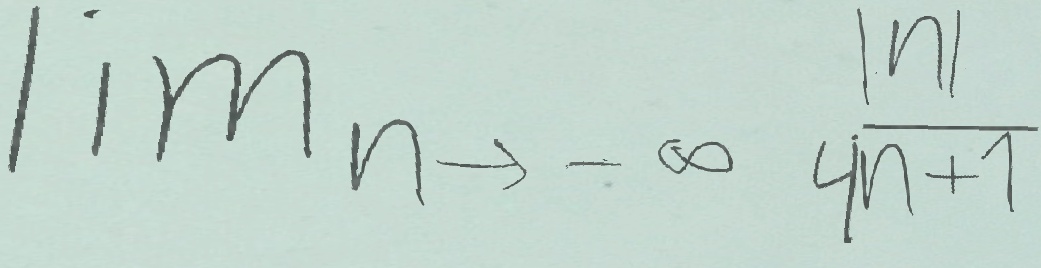 lim n→-∞ |n|/4n+1